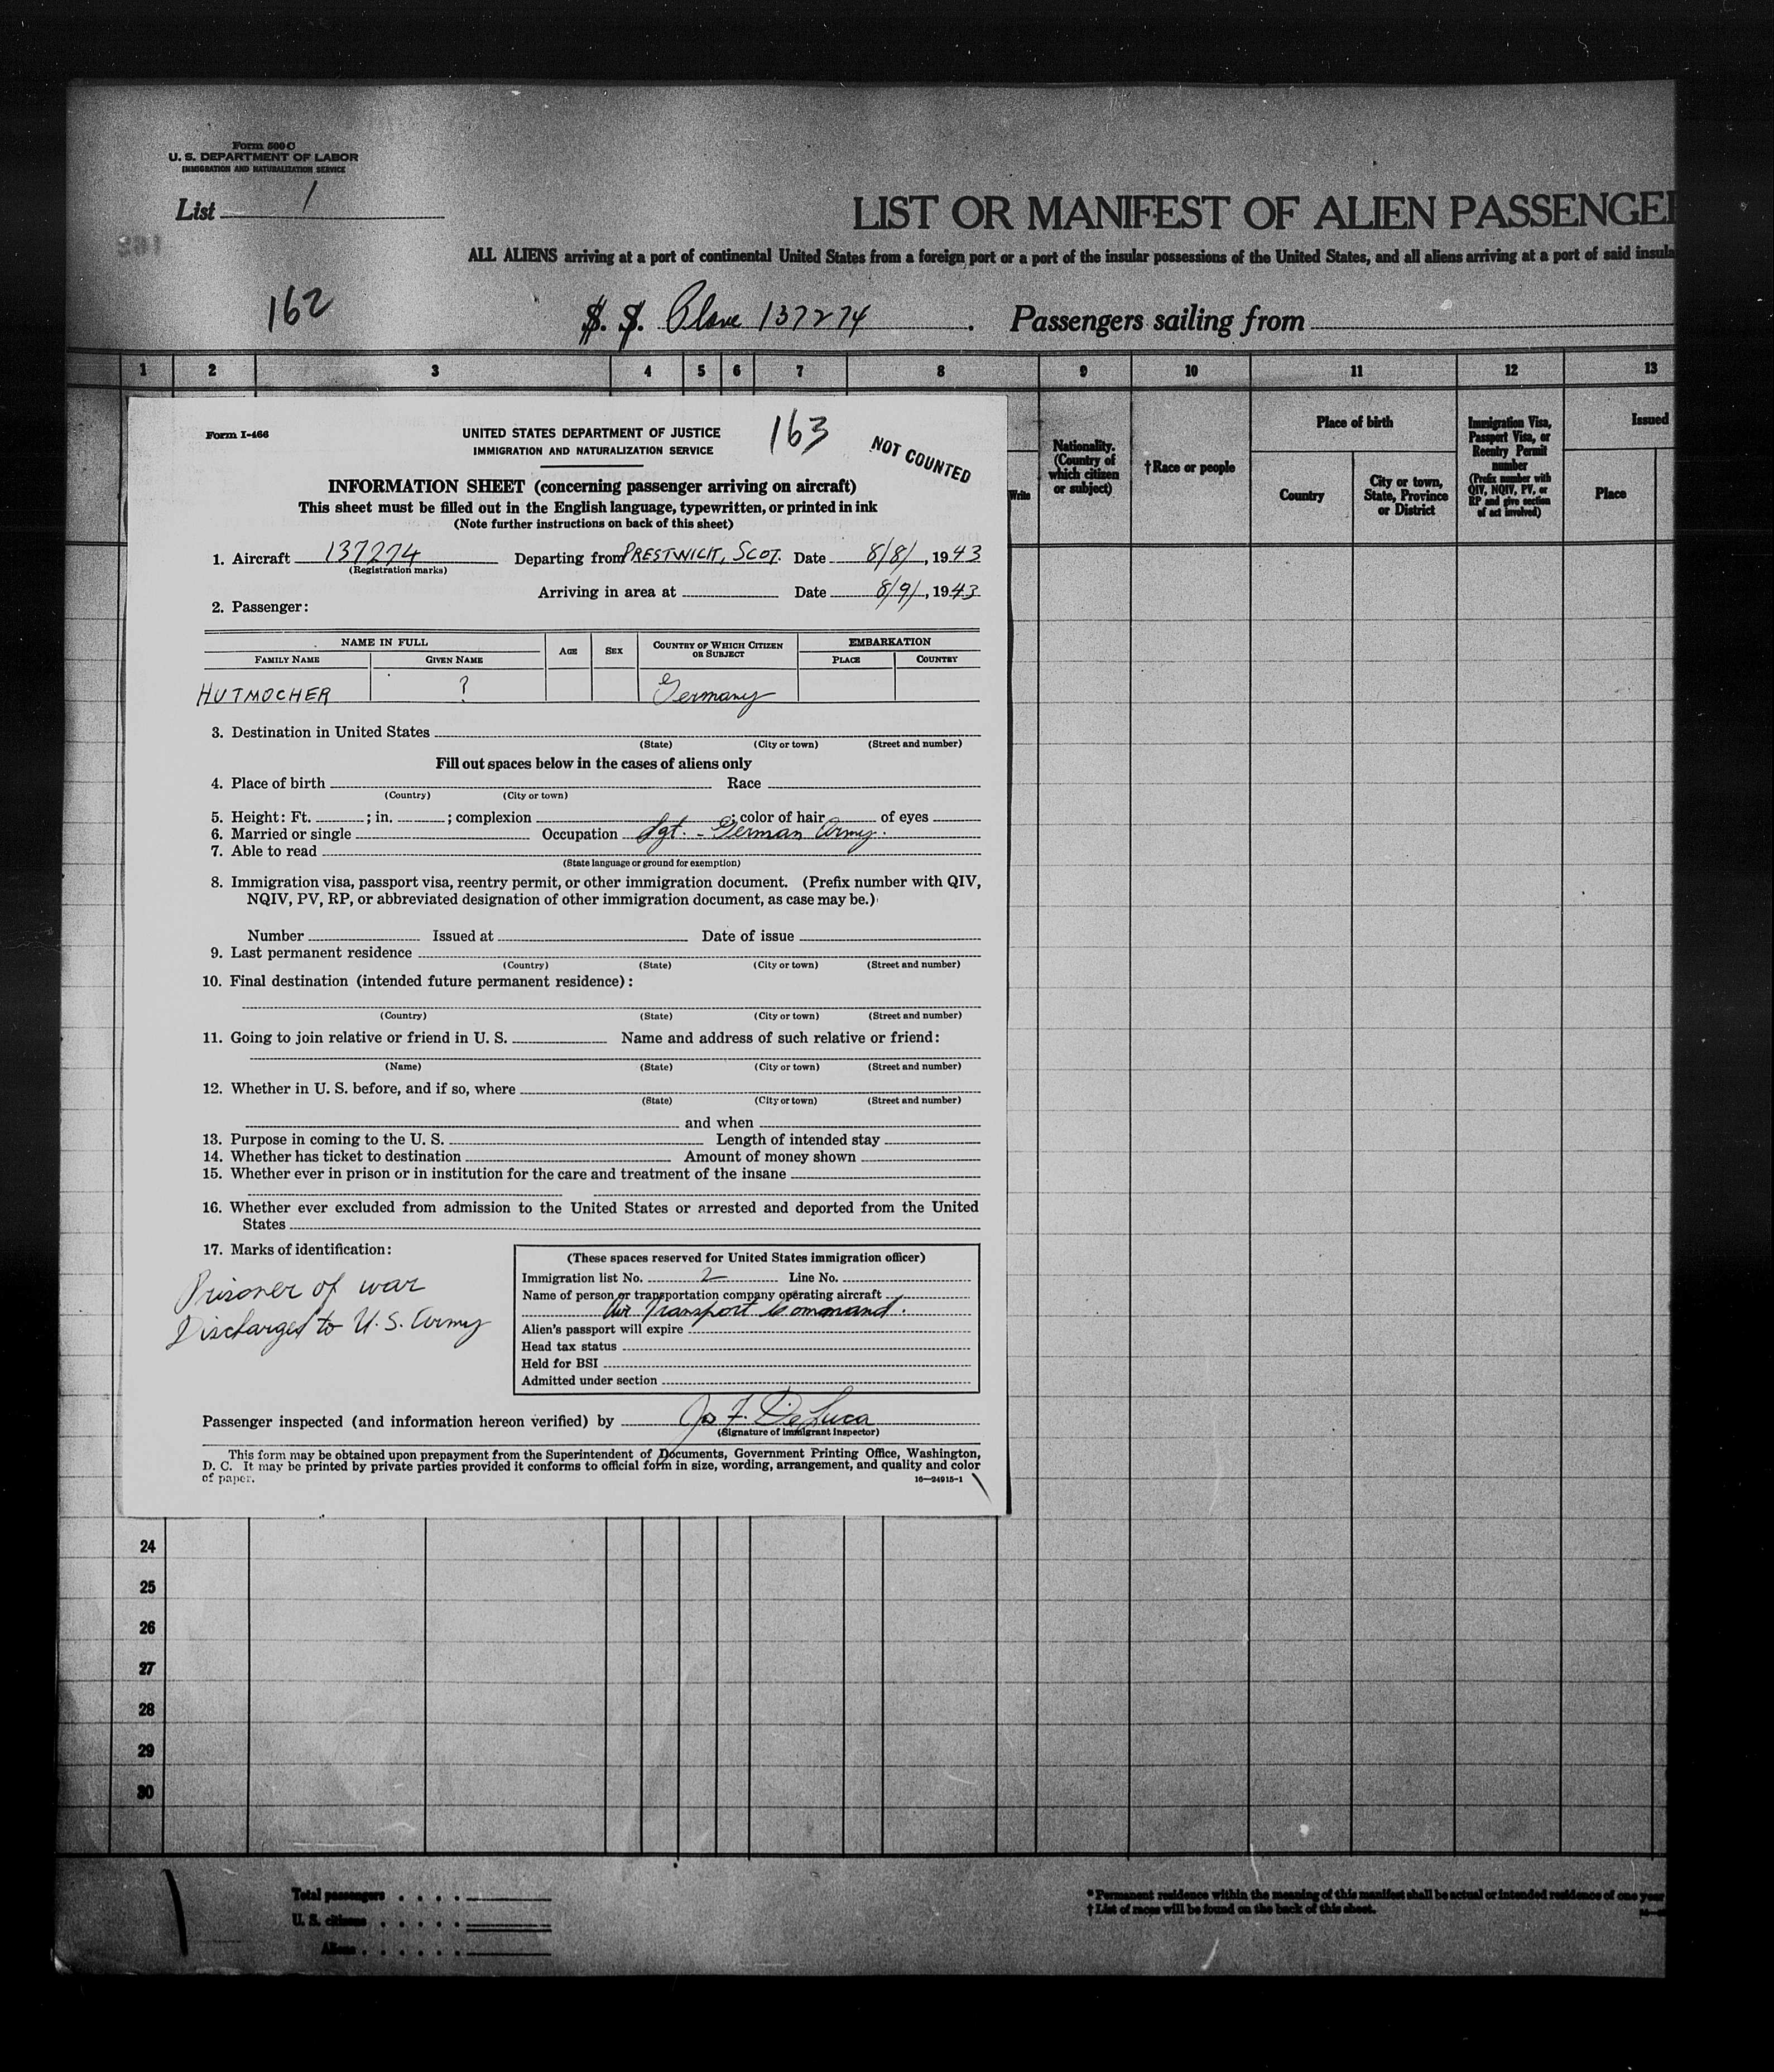 Form 500 C
U. S. DEPARTMENT OF LABOR
IMMIGRATION AND NATURALIZATION SERVICE
List 1
LIST OR MANIFEST OF ALIEN PASSENGE
ALL ALIENS arriving at a port of continental United States from a foreign port or a port of the insular possessions of the United States, and all aliens arriving at a port of said insula
162
S. S. Plane 137274 . Passengers sailing from
1 2 3 4 5 6 7 8 9 10 11 12 13
Write
Nationality. (Country of which citizen or subject)
† Race or people
Place of birth
Country
City or town, State, Province or District
Immigration Visa, Passport Visa, or Reentry Permit number (Prefix number with QIV, NQIV, PV, or RP and give section of act involved)
Issued
Place
Form I-466
UNITED STATES DEPARTMENT OF JUSTICE
IMMIGRATION AND NATURALIZATION SERVICE
163
NOT COUNTED
INFORMATION SHEET (concerning passenger arriving on aircraft)
This sheet must be filled out in the English language, typewritten, or printed in ink
(Note further instructions on back of this sheet)
1. Aircraft 137274 Departing from PRESTWICK, SCOT. Date 8/8/, 1943
(Registration marks)
Arriving in area at Date 8/9/, 1943
2. Passenger:
NAME IN FULL AGE SEX COUNTRY OF WHICH CITIZEN OR SUBJECT EMBARKATION
FAMILY NAME GIVEN NAME PLACE COUNTRY
HUTMOCHER ? Germany
3. Destination in United States
(State) (City or town) (Street and number)
Fill out spaces below in the cases of aliens only
4. Place of birth Race
(Country) (City or town)
5. Height: Ft. ; in. ; complexion ; color of hair of eyes
6. Married or single Occupation Sgt. - German Army.
7. Able to read
(State language or ground for exemption)
8. Immigration visa, passport visa, reentry permit, or other immigration document. (Prefix number with QIV,
NQIV, PV, RP, or abbreviated designation of other immigration document, as case may be.)
Number Issued at Date of issue
9. Last permanent residence
(Country) (State) (City or town) (Street and number)
10. Final destination (intended future permanent residence):
(Country) (State) (City or town) (Street and number)
11. Going to join relative or friend in U. S. Name and address of such relative or friend:
(Name) (State) (City or town) (Street and number)
12. Whether in U. S. before, and if so, where
(State) (City or town) (Street and number)
and when
13. Purpose in coming to the U. S. Length of intended stay
14. Whether has ticket to destination Amount of money shown
15. Whether ever in prison or in institution for the care and treatment of the insane
16. Whether ever excluded from admission to the United States or arrested and deported from the United
States
17. Marks of identification:
Prisoner of war
Discharged to U. S. Army
(These spaces reserved for United States immigration officer)
Immigration list No. 2 Line No.
Name of person or transportation company operating aircraft
Air Transport Command.
Alien's passport will expire
Head tax status
Held for BSI
Admitted under section
Passenger inspected (and information hereon verified) by Jos F. DeLuca
(Signature of immigrant inspector)
This form may be obtained upon prepayment from the Superintendent of Documents, Government Printing Office, Washington,
D. C. It may be printed by private parties provided it conforms to official form in size, wording, arrangement, and quality and color
of paper.
16—24915-1
24
25
26
27
28
29
30
Total passengers
U. S. citizens
Aliens
* Permanent residence within the meaning of this manifest shall be actual or intended residence of one year
† List of races will be found on the back of this sheet.